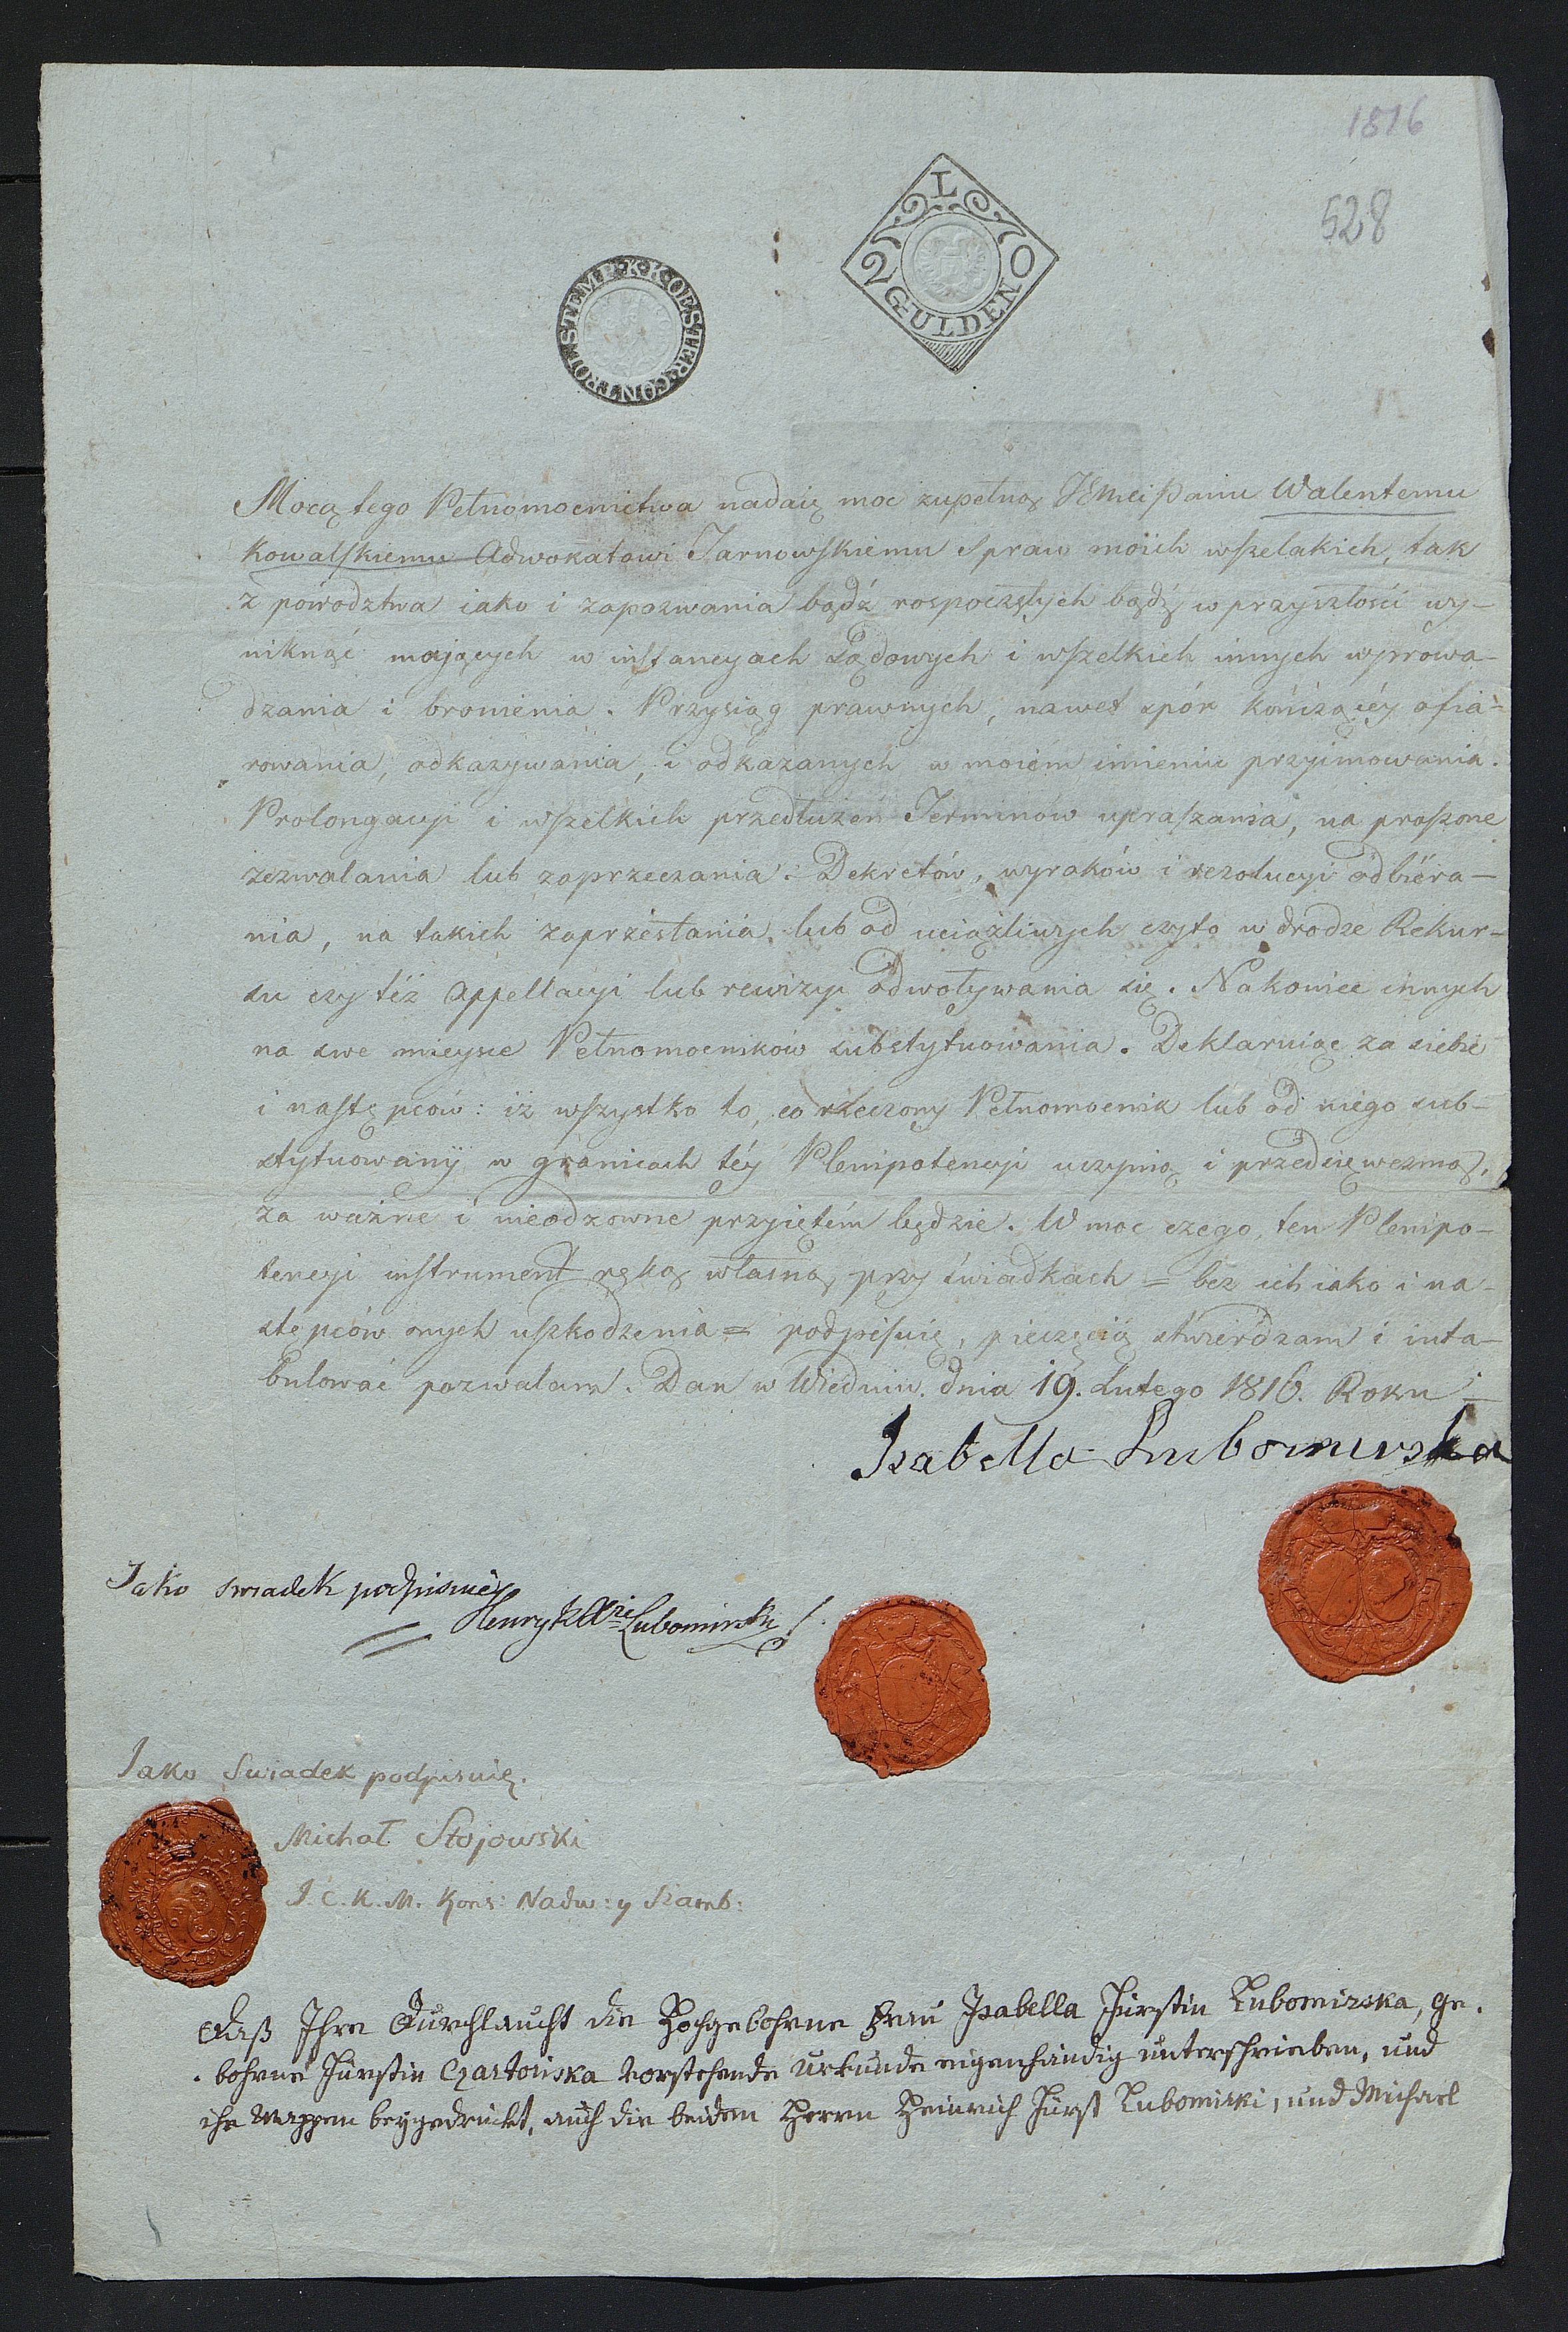 1816
528
L
20
GULDEN
K·K·OESTER·CONTROL·STEMP·
Mocą tego Pełnomocnictwa nadaię moc zupełną JEmci Panu Walentemu
Kowalſkiemu Adwokatowi Tarnowſkiemu Spraw moich wſzelakich, tak
z powodztwa iako i zapozwania bądź rospoczętych bądź w przyszłości wy-
niknąć mających w inſtancyach Sądowych i wſzelkich innych wprowa-
dzania i bronienia. Przysiąg prawnych, nawet spór kończącéy ofia-
rowania, odkazywania, i odkazanych w moiém imieniu przyimowania.
Prolongacyi i wſzelkich przedłużeń Terminów upraſzania, na proſzone
zezwalania lub zaprzeczania. Dekretów, wyroków i rezolucyi odbiéra-
nia, na takich zaprzéstania, lub od uciążliwych czyto w drodze Rekur-
su czy téż Appellacyi lub rewizyi odwoływania się. Nakoniec innych
na swe mieysce Pełnomocników substytuowania. Deklaruiąc za siebie
i naſtępców: iż wſzystko to, co rzeczony Pełnomocnik lub od niego sub-
stytuowany w granicach téy Plenipotencyi uczynią i przedsięwezmą,
za ważne i nieodzowne przyiętém będzie. W moc czego, ten Plenipo-
tencyi inſtrument ręką własną przy świadkach = bez ich iako i na-
stępców onych uſzkodzenia = podpiſuię, pieczęcią stwierdzam i inta-
bulować pozwalam. Dan w Wiedniu dnia 19. Lutego 1816. Roku
Isabella Lubomirska
Jako swiadek podpisuię
Henryk Xże Lubomirski
Jako Swiadek podpisuię.
Michał Stojowski
J. C. K. M. Kons: Nadw: y Szamb:
Daß Ihre Durchlaucht die Hochgebohrne Frau Isabella Fürstin Lubomirska, ge-
bohrne Fürstin Czartoriska vorstehende Urkunde eigenhändig unterschrieben, und
ihr Wappen beygedruckt, auch die beiden Herrn Heinrich Fürst Lubomirski, und Michael